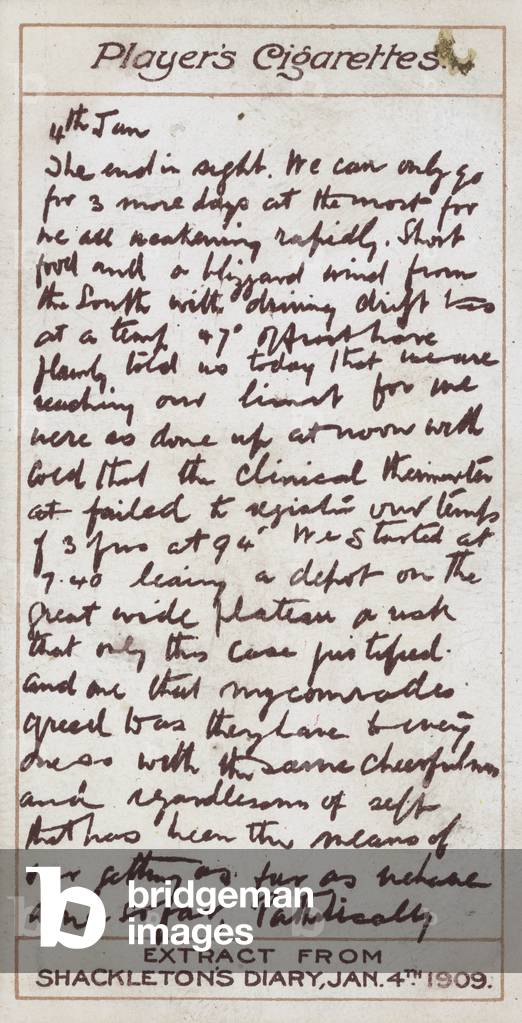 Player's Cigarettes.
4th Jan
The end in sight. We can only go
for 3 more days at the most for
we all weakening rapidly. Short
food and a blizzard wind from
the South with driving drift
at a temp 47° of frost have
plainly told us today that we are
reaching our limit for we
were so done up at noon with
cold that the clinical thermometer
failed to register our temps
of 3 of us at 94° We started at
7.40 leaving a depot on the
great wide plateau a risk
that only this case justified.
and one that my comrades
agreed to as they have to every
one so with the same cheerfulness
and regardlessness of self
that has been the means of
our getting as far as we have
done so far. Pathetically
bridgeman
images
EXTRACT FROM
SHACKLETON'S DIARY, JAN. 4TH 1909.